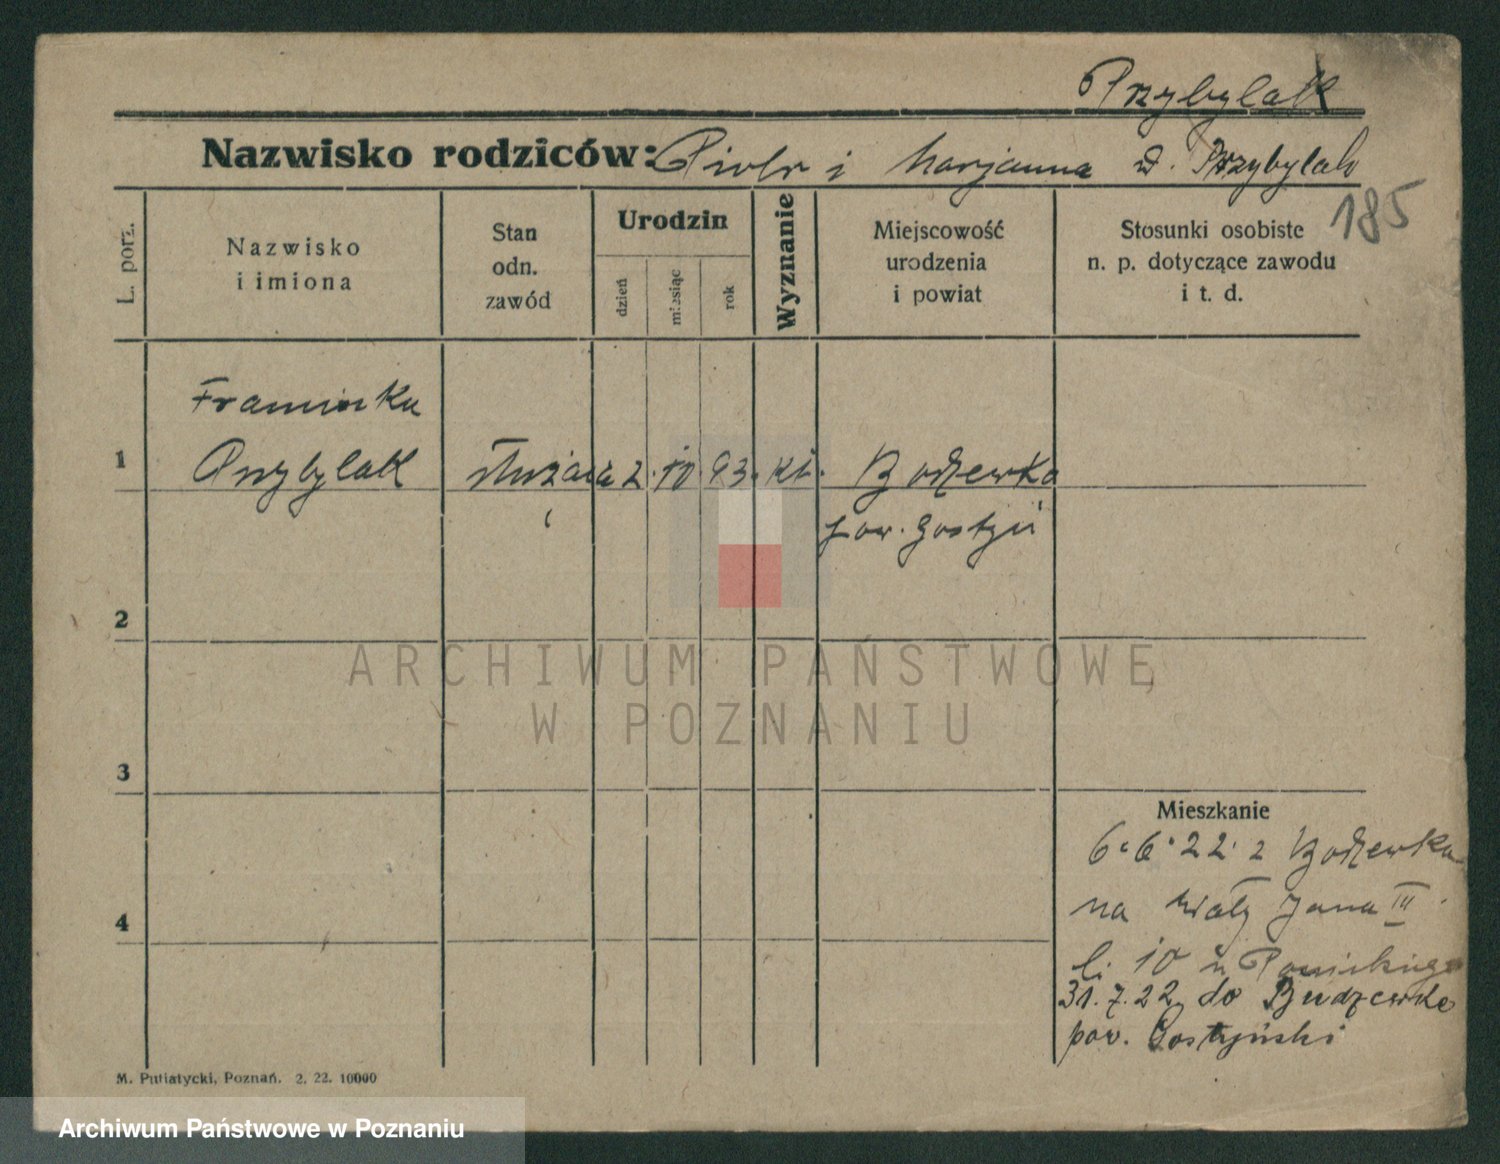 Przybylak
Nazwisko rodziców: Piotr i Marjanna d. Przybylak
185
L. porz.
Nazwisko
i imiona
Stan
odn.
zawód
Urodzin
dzień
miesiąc
rok
Wyznanie
Miejscowość
urodzenia
i powiat
Stosunki osobiste
n. p. dotyczące zawodu
i t. d.
Przybylak służąca 2. 10 93. kt. Bodzewka
pow. Gostyń
1
2
3
4
Mieszkanie
6.6.22. z Bodzewka
na Wały Jana III
li. 10 u
31.7.22 do Budzewko
pow. Gostyński
M. Putiatycki, Poznań. 2. 22. 10000
ARCHIWUM PAŃSTWOWE
W POZNANIU
Archiwum Państwowe w Poznaniu